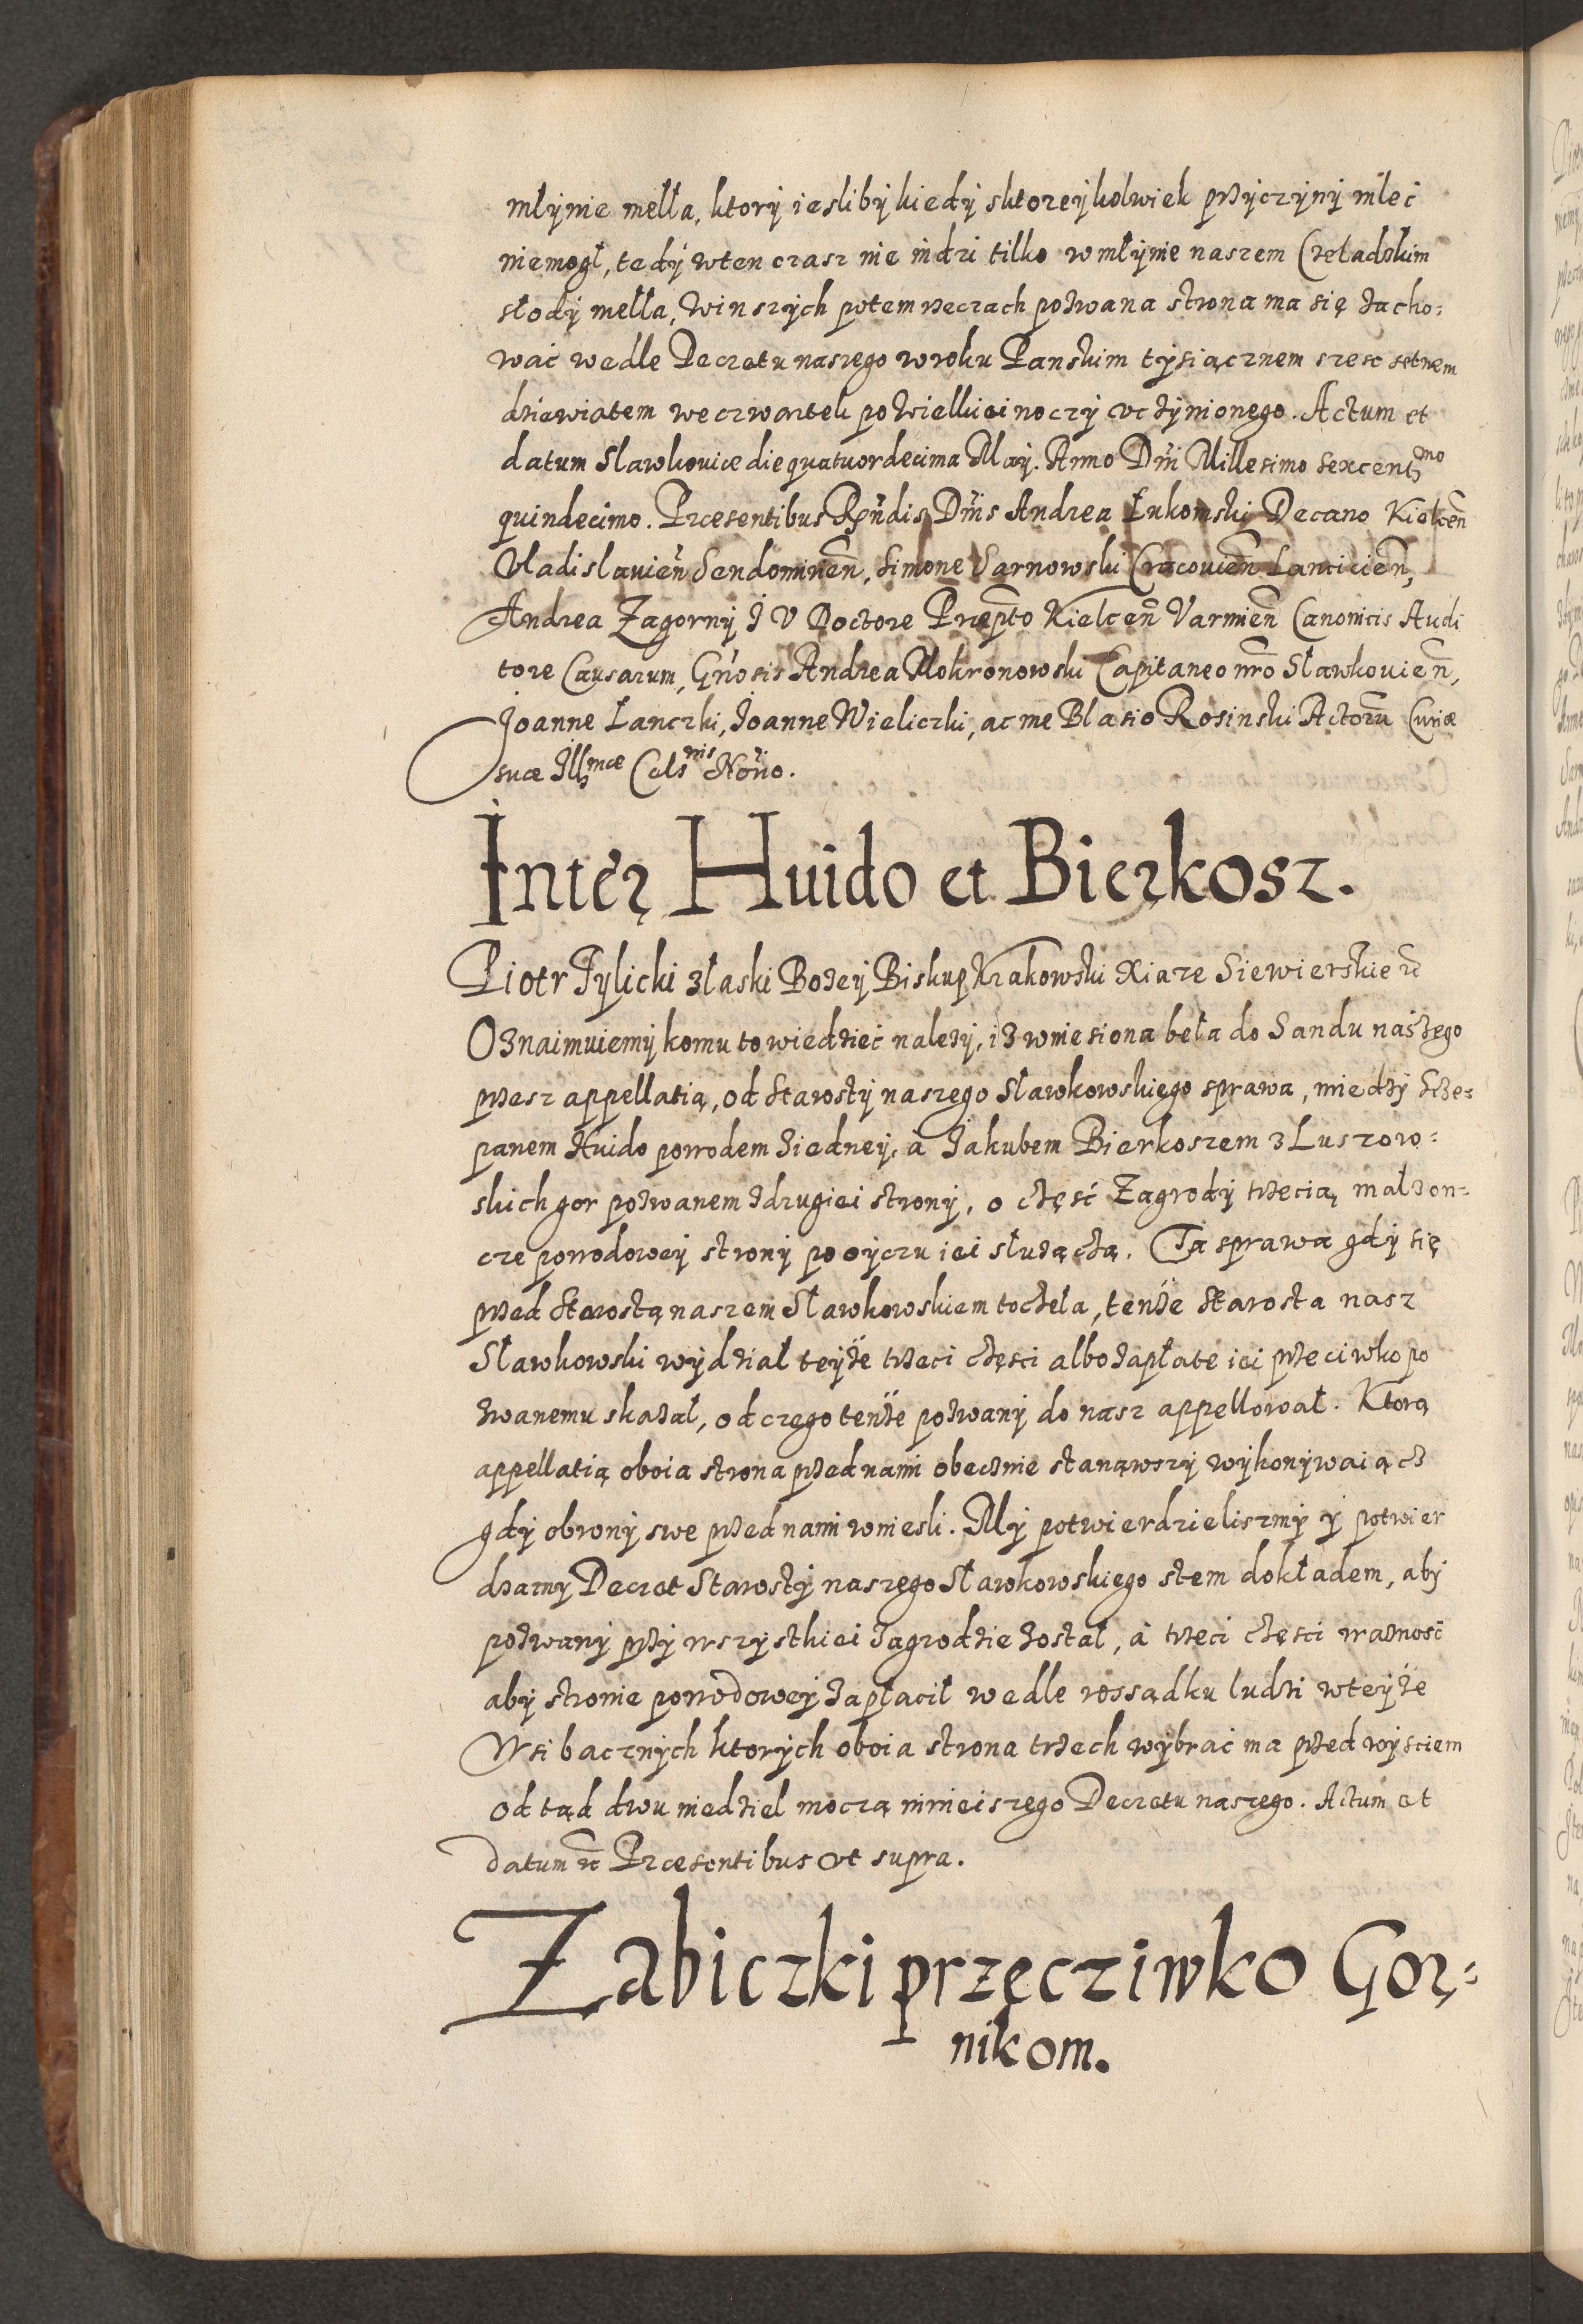 młynie mełła, ktory iesliby kiedy sktoreykolwiek przyczyny mleć
niemogł, tedy wten czasz nie indzi tilko wmłynie naszem Czeladzkim
słody mełła, Winszych potem rzeczach pozwana strona ma się zacho:
wać wedle Decretu naszego wroku Panskim tysiącznem szesc setnem
dziewiatem weczwartek po Wielkiei noczy vczynionego. Actum et
datum Slawkovice die quatuordecima May. Anno Dni Millesimo Sexcentmo
quindecimo. Præsentibus Rndis Dnis Andrea Łukomski Decano Kielcen
Vladislavien Sendomirien, Simone Sarnowski Cracovien Lancicien,
Andrea Zagorny J V Doctore Præpto Kielcen Varmien Canonicis Audi
tore Causarum, Gnosis Andrea Mokronowski Capitaneo nro Sławkovien,
Joanne Łanczki, Joanne Wieliczki, ac me Blasio Rosinski Actoru Curiæ
suæ Illmæ Celsnis Norio.
Inter Huido et Bierkosz.
Piotr Tylicki złaski Bozey Biskup Krakowski Xiaze Siewierskie etc
Oznaimuiemy komu to wiedzieć nalezy, iz wniesiona beła do Sandu naszego
przesz appellatią, od Starosty naszego Sławkowskiego sprawa, miedzy Scze:
panem Huido powodem ziedney, à Jakubem Bierkoszem z Luszow:
skich gor pozwanem zdrugiei strony, o część Zagrody trzecią malzon:
cze powodowey strony po oyczu iei słuzączą. Ta sprawa gdy się
przed Starostą naszem Sławkowskiem toczeła, tenze Starosta nasz
Sławkowski wydział teyze trzeci części albo zapłate iei przeciwko po
zwanemu skazał, od czego tenze pozwany do nasz appellował. Ktorą
appellatią oboia strona przed nami obecznie stanąwszy wykonywaiącz
gdy obrony swe przed nami wniesli. My potwierdzieliszmy y potwier
dzamy Decret Starosty naszego Sławkowskiego stem dokładem, aby
pozwany przy wszystkiei zagrodzie został, à trzeci części waznosć
aby stronie powodowey zapłacił wedle rossądku ludzi wteyze
Wsi bacznych ktorych oboia strona trzech wybrać ma przed wysciem
od tąd dwu niedziel moczą ninieiszego Decretu naszego. Actum et
datum etc Præsentibus vt supra.
Zabiczki przecziwko Gor:
nikom.